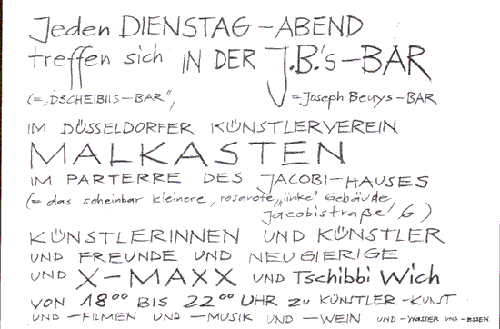 Jeden DIENSTAG-ABEND
treffen sich IN DER J.B.'s-BAR
(="DSCHEIBIIS-BAR", =Joseph Beuys-BAR
IM DÜSSELDORFER KÜNSTLERVEREIN
MALKASTEN
IM PARTERRE DES JACOBI-HAUSES
(= das scheinbar kleinere, rosarote, Gebäude,
Jacobistraße 6)
KÜNSTLERINNEN UND KÜNSTLER
UND FREUNDE UND NEUGIERIGE
UND X-MAXX UND Tschibbi Wich
VON 18⁰⁰ BIS 22⁰⁰ UHR ZU KÜNSTLER-KUNST
UND-FILMEN UND-MUSIK UND-WEIN UND-WASSER UND-ESSEN